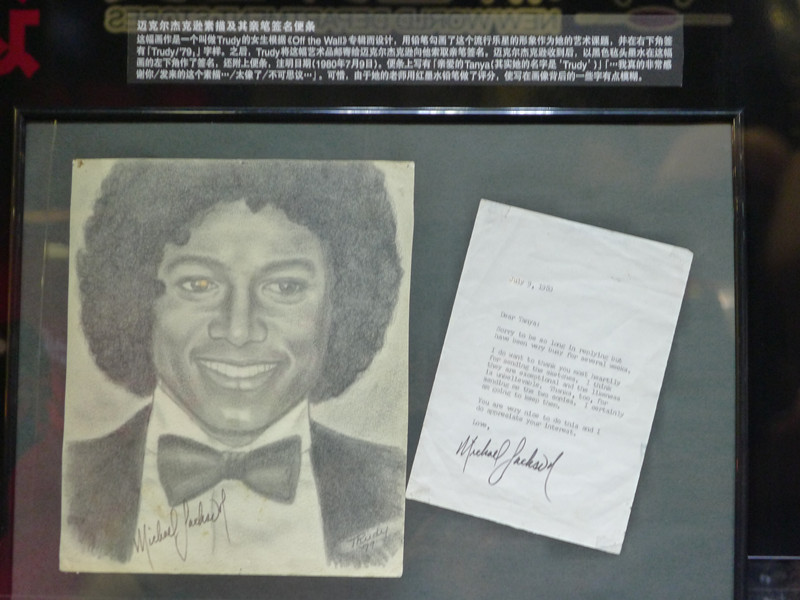 迈克尔杰克逊素描及其亲笔签名便条
这幅画作是一个叫做Trudy的女生根据《Off the Wall》专辑而设计，用铅笔勾画了这个流行乐星的形象作为她的艺术课题，并在右下角签
有「Trudy/'79」字样。之后，Trudy将这艺术品邮寄给迈克尔杰克逊向他索取亲笔签名，迈克尔杰克逊收到后，以黑色毡头墨水在这幅
画的左下角作了签名，还附上便条，注明日期（1980年7月9日）。便条上写有「亲爱的Tanya（其实她的名字是'Trudy'）」「…我真的非常感
谢你/发来的这个素描…/太像了/不可思议…」。可惜，由于她的老师用红墨水铅笔做了评分，使写在画像背后的一些字有点模糊。
July 9, 1980
Dear Tanya:
Sorry to be so long in replying but
have been very busy for several weeks.
I do want to thank you most heartily
for sending the sketches. I think
they are exceptional and the likeness
is unbelievable. Thanks, too, for
sending me the two copies. I certainly
am going to keep them.
You are very nice to do this and I
do appreciate your interest.
Love,
Michael Jackson
Michael Jackson
Trudy
'79